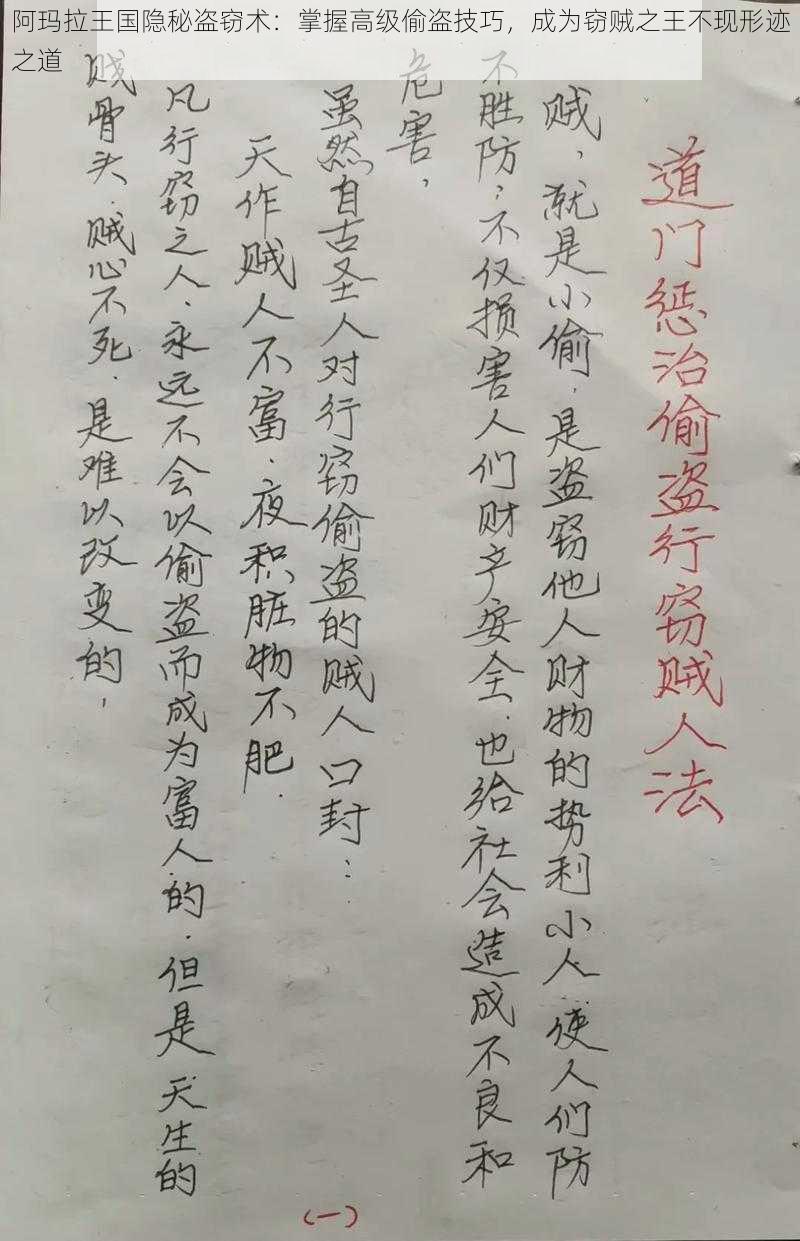 阿玛拉王国隐秘盗窃术：掌握高级偷盗技巧，成为窃贼之王不现形迹
之道
道门惩治偷盗行窃贼人法
贼，就是小偷，是盗窃他人财物的势利小人，使人们防
不胜防；不仅损害人们财产安全，也给社会造成不良和
危害，
虽然自古圣人对行窃偷盗的贼人口封：
天作贼人不富．夜积脏物不肥．
凡行窃之人．永远不会以偷盗而成为富人的．但是天生的
贱骨头．贼心不死．是难以改变的，
（一）